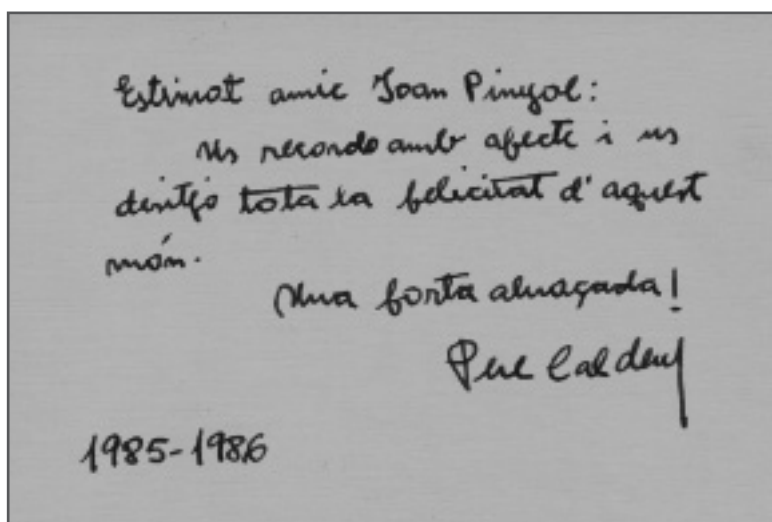 Estimat amic Joan Pinyol:
Us recordo amb afecte i us
desitjo tota la felicitat d'aquest
món.
Una forta abraçada!
Pere Calders
1985-1986